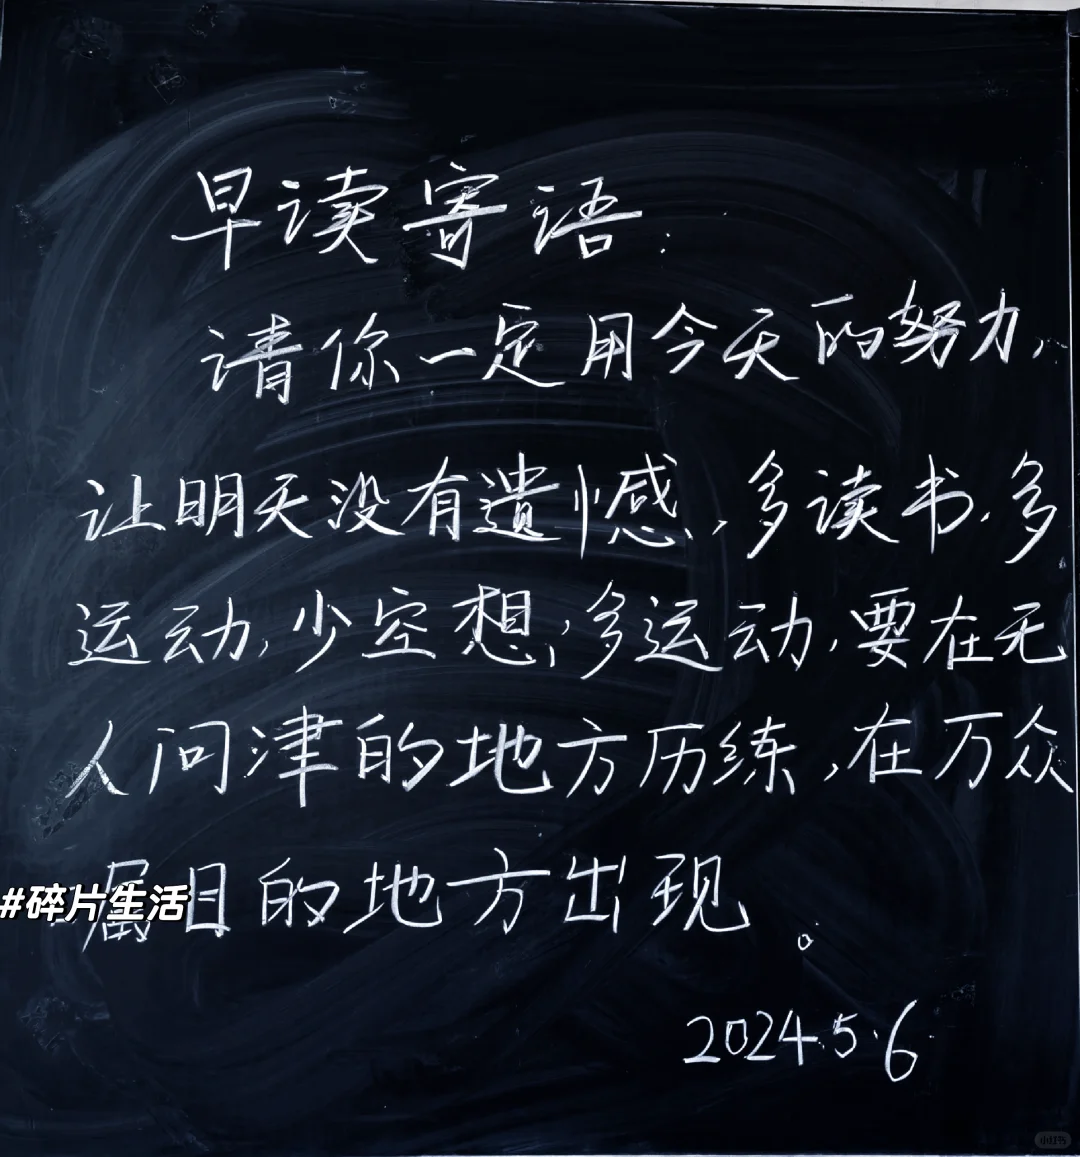 早读寄语:
请你一定用今天的努力,
让明天没有遗憾,多读书,多
运动,少空想,多运动,要在无
人问津的地方历练,在万众
瞩目的地方出现。
#碎片生活
2024.5.6
小红书